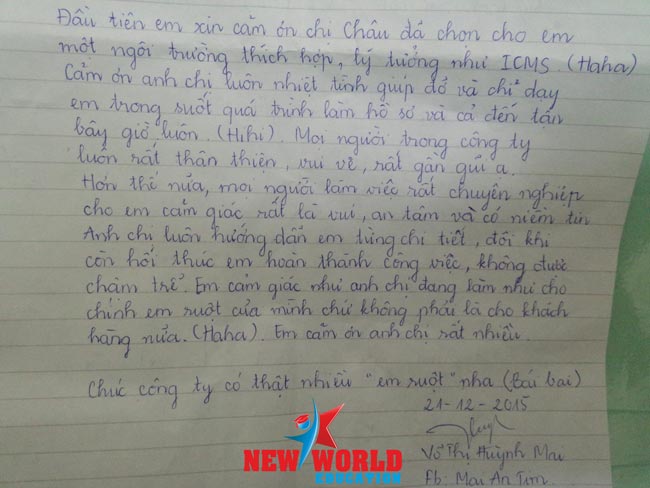 Đầu tiên em xin cảm ơn chị Châu đã chọn cho em
một ngôi trường thích hợp, lý tưởng như ICMS. (Haha)
Cảm ơn anh chị luôn nhiệt tình giúp đỡ và chỉ dạy
em trong suốt quá trình làm hồ sơ và cả đến tận
bây giờ luôn. (Hihi). Mọi người trong công ty
luôn rất thân thiện, vui vẻ, rất gần gũi ạ.
Hơn thế nữa, mọi người làm việc rất chuyên nghiệp
cho em cảm giác rất là vui, an tâm và có niềm tin
Anh chị luôn hướng dẫn em từng chi tiết, đôi khi
còn hối thúc em hoàn thành công việc, không được
chậm trễ. Em cảm giác như anh chị đang làm như cho
chính em ruột của mình chứ không phải là cho khách
hàng nữa. (Haha). Em cảm ơn anh chị rất nhiều.
Chúc công ty có thật nhiều "em ruột" nha (Bái bai)
21-12-2015
Võ Thị Huỳnh Mai
Fb: Mai An Tim
NEW WORLD
EDUCATION